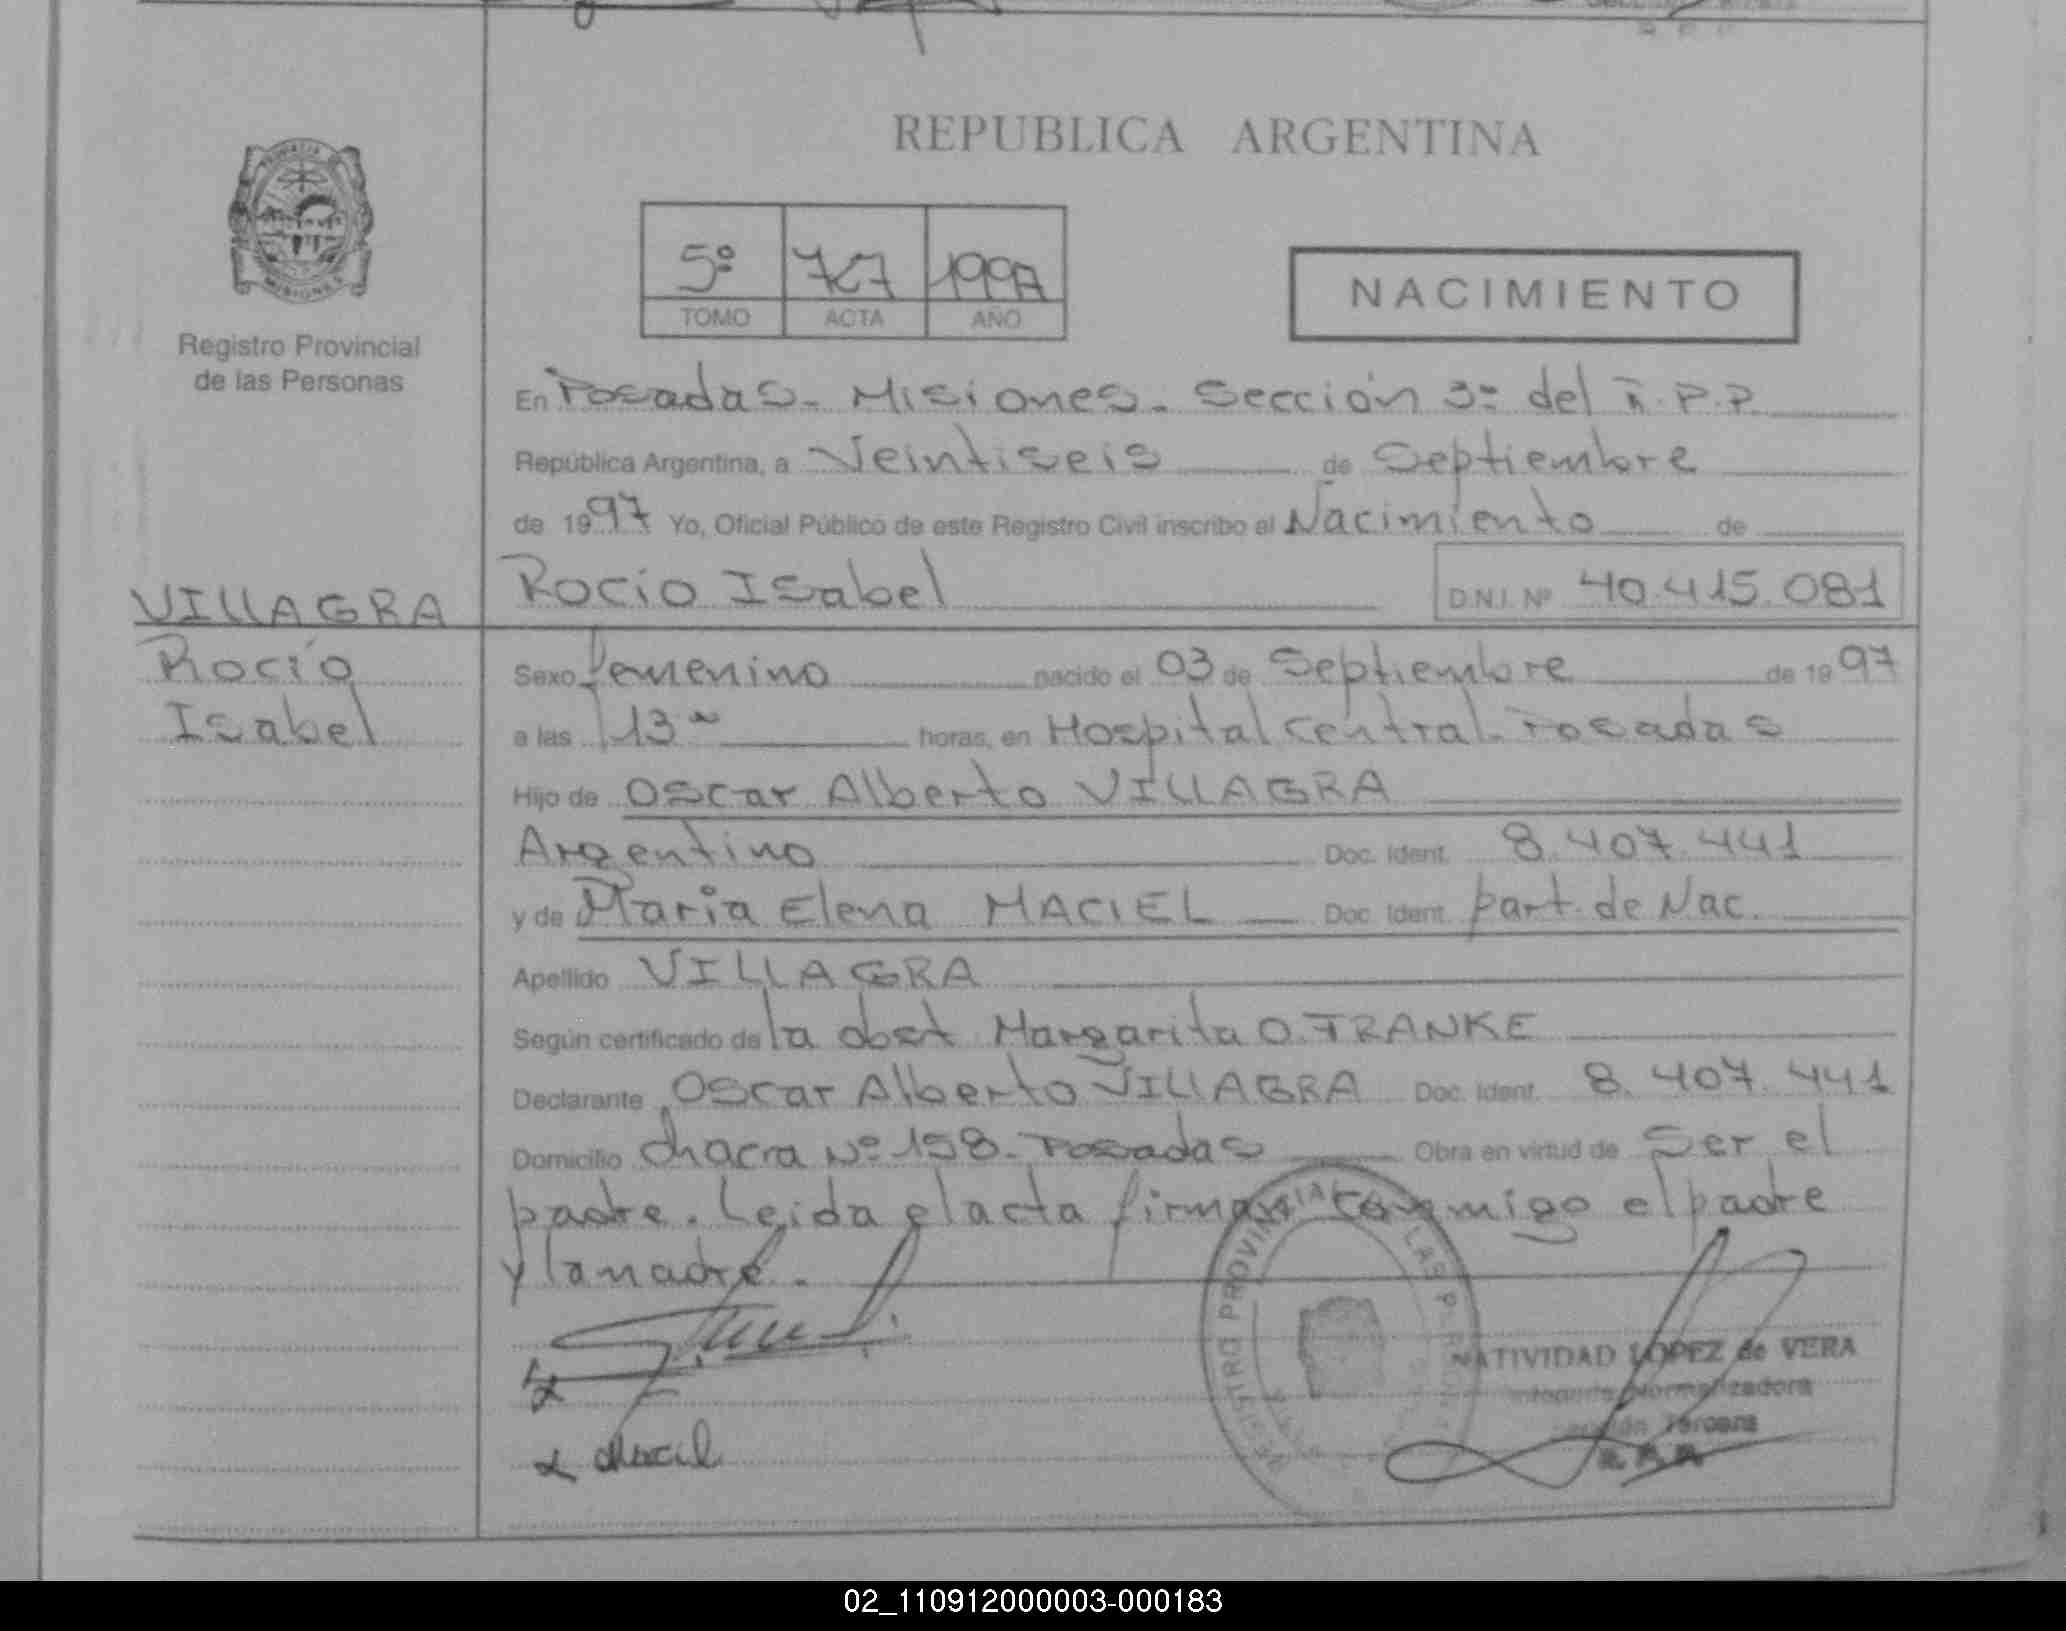 REPUBLICA ARGENTINA
PROVINCIA
MISIONES
Registro Provincial
de las Personas
5º 727 1997
TOMO ACTA AÑO
NACIMIENTO
En Posadas - Misiones - Sección 3º del R.P.P.
República Argentina, a Veintiseis de Septiembre
de 1997 Yo, Oficial Público de este Registro Civil inscribo el Nacimiento de
VILLAGRA
Rocío
Isabel
Rocio Isabel D.N.I. Nº 40.415.081
Sexo femenino nacido el 03 de Septiembre de 1997
a las 13 horas, en Hospital Central - Posadas
Hijo de Oscar Alberto VILLAGRA
Argentino Doc. Ident. 8.407.441
y de Maria Elena MACIEL Doc. Ident. part. de Nac.
Apellido VILLAGRA
Según certificado de la obst Margarita O. FRANKE
Declarante Oscar Alberto VILLAGRA Doc. Ident. 8.407.441
Domicilio Chacra Nº 158 - Posadas Obra en virtud de Ser el
padre. Leida el acta firman conmigo el padre
y la madre.
REGISTRO PROVINCIAL LAS
NATIVIDAD LOPEZ de VERA
Normalizadora
Tercera
Maciel
02_110912000003-000183